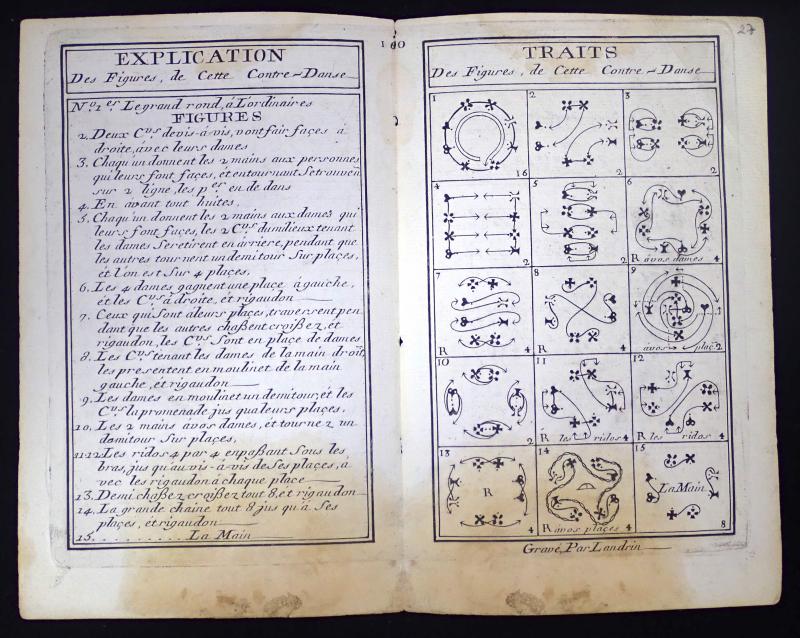 EXPLICATION
Des Figures, de Cette Contre-Danse
N.os 1.er Le grand rond, à L'ordinaires
FIGURES
2. Deux C.rs de vis-à-vis, vont fair façes a
droite, àvec leurs dames
3. Chaqu'un donnent les 2 mains aux personnes
qui leurs font façes, et entournant Se trouven
sur 2 ligne, les p.er en de dans
4. En avant tout huites,
5. Chaqu'un donnent les 2 mains aux dames qui
leurs font façes, les 2 C.rs du milieux tenant
les dames Se retirent en àrriere, pendant que
les autres tournent un demi tour Sur plaçes,
et l'on est Sur 4 plaçes,
6. Les 4 dames gagnent une plaçe à gauche,
et les C.rs à droite, et rigaudon
7. Ceux qui Sont àleurs plaçes, traversent pen
dant que les autres chaßent croißez, et
rigaudon, les C.rs Sont en plaçe de dames
8. Les C.rs tenant les dames de la main droit,
les presentent en moulinet de la main
gauche, et rigaudon
9. Les dames en moulinet un demi tour, et les
C.rs la promenade jus qualeurs plaçes,
10. Les 2 mains avos dames, et tournez un
demitour Sur plaçes,
11 12. Les ridos 4 par 4 enpaßant Sous les
bras, jus qu'au vis-à-vis de Ses plaçes, a
vec les rigaudon à chaque place
13. Demi chaßez croißez tout 8, et rigaudon
14. La grande chaine tout 8 jus qu'à Ses
plaçes, et rigaudon
15. . . . . . . . . . . La Main
100
27
TRAITS
Des Figures, de Cette Contre-Danse
1
16
2
2
3
2
4
5
2
6
R àvos dames 4
7
R 4
8
R 4
9
àvos plaç. 2
10
2
11
R les ridos 4
12
R les ridos 4
13
R
4
14
R àvos plaçes 4
15
La Main
8
Gravé, Par Landrin